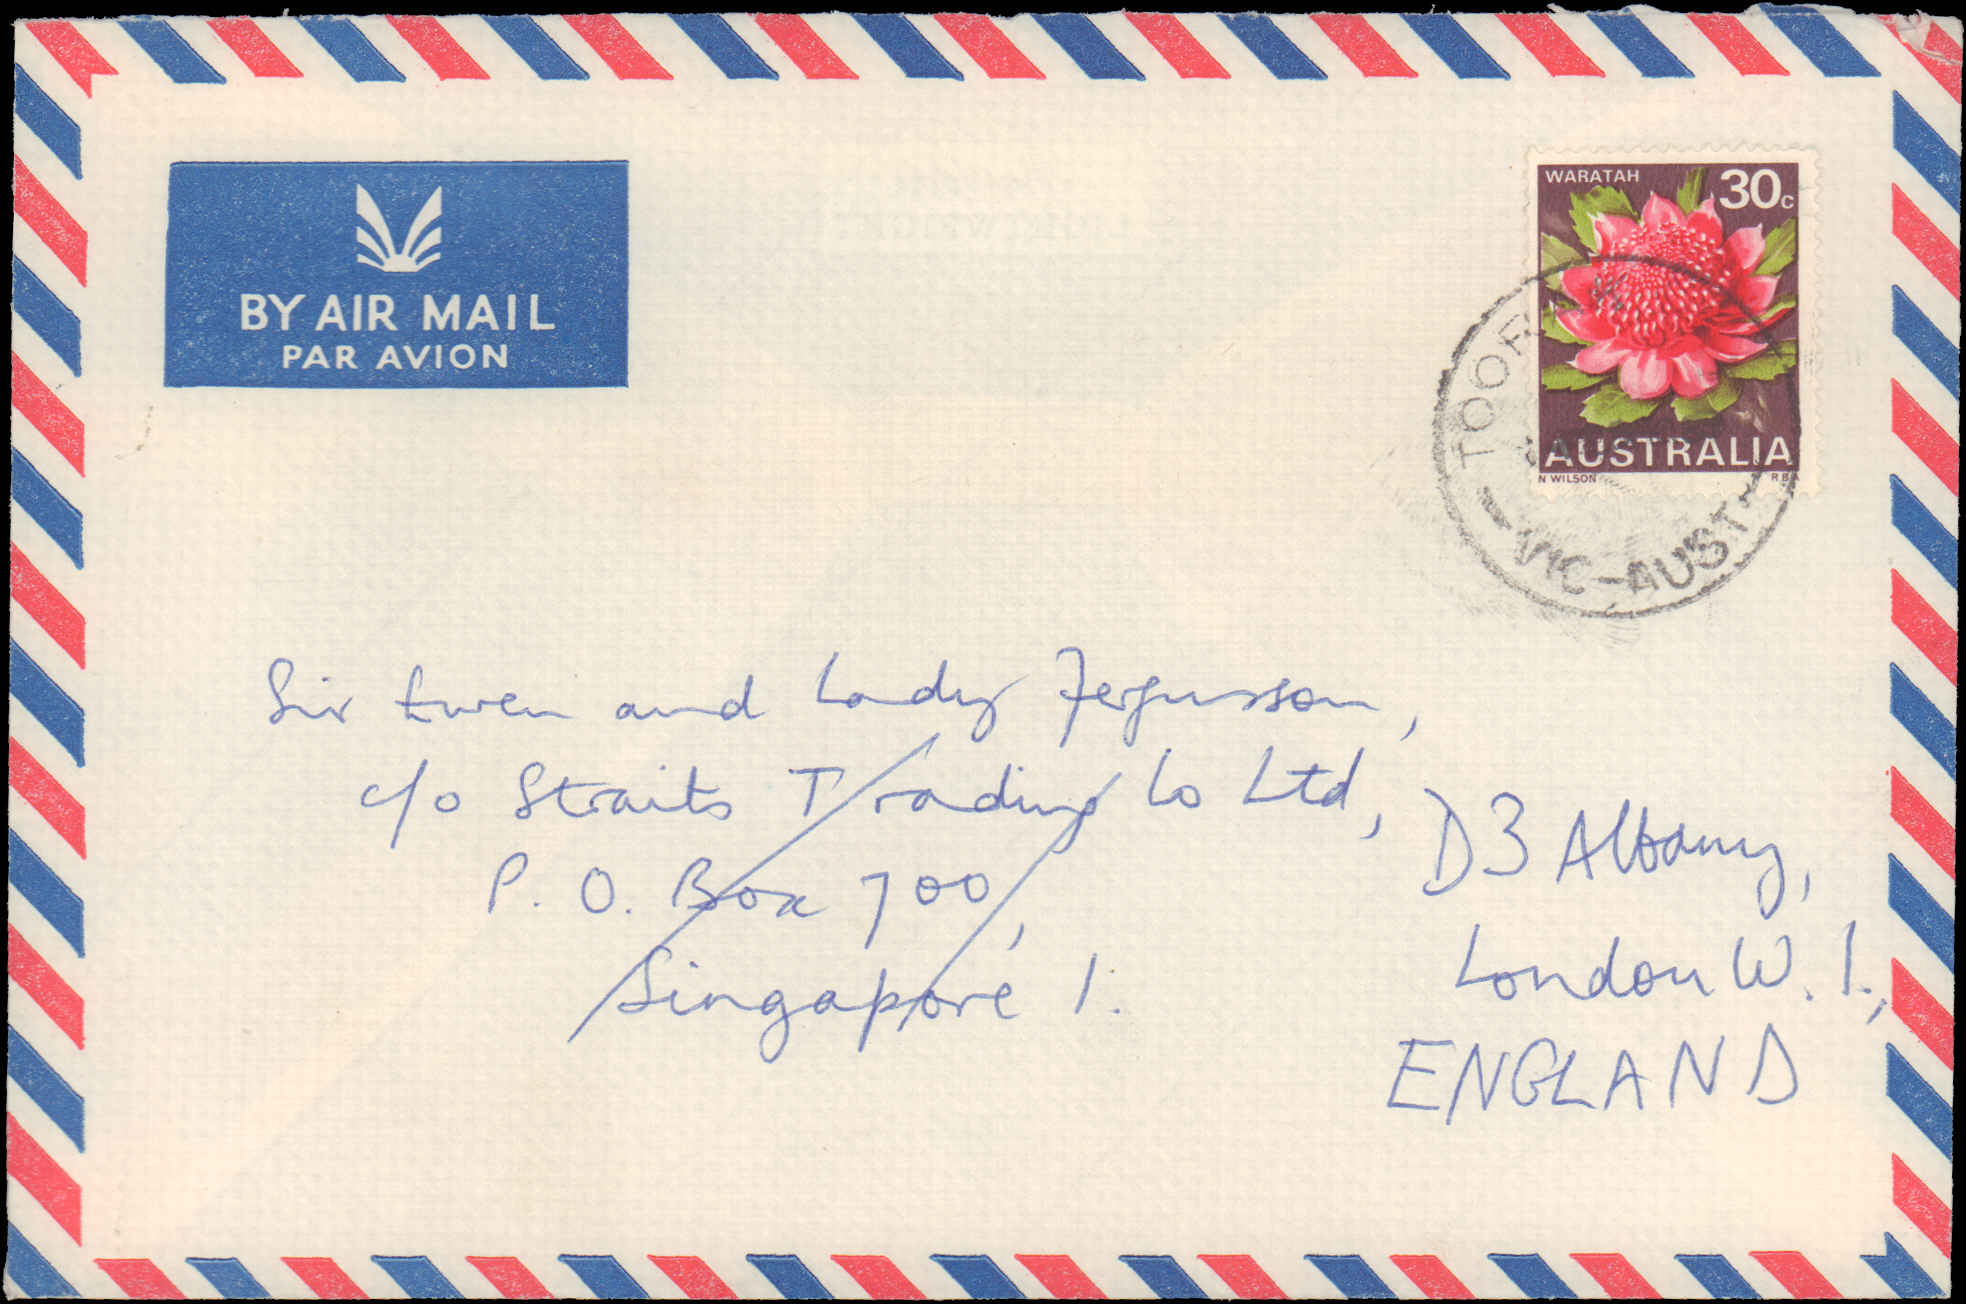 BY AIR MAIL
PAR AVION
WARATAH 30c
AUSTRALIA
N WILSON RBA
VIC-AUST
Sir Ewen and Lady Fergusson,
c/o Straits Trading Co Ltd,
P. O. Box 700,
Singapore 1.
D3 Albany,
London W. 1.,
ENGLAND